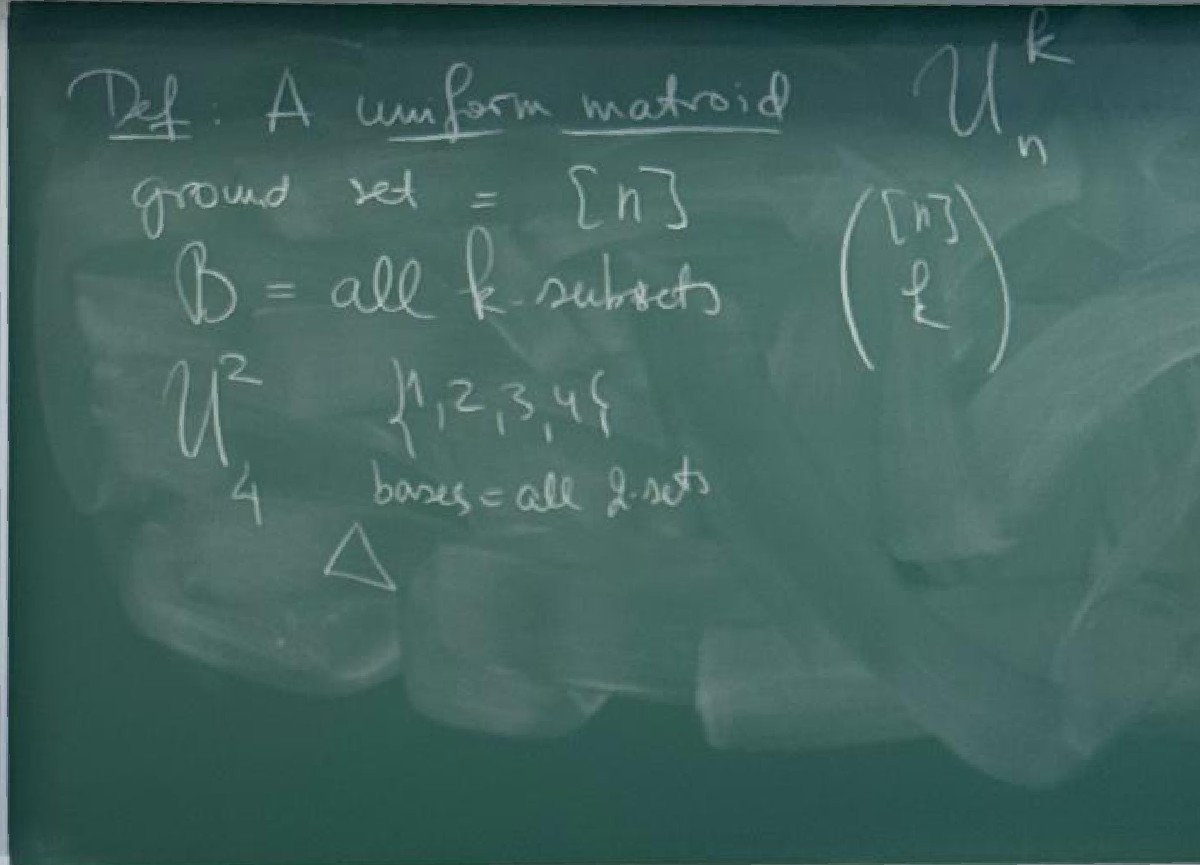 Def: A uniform matroid U_n^k
ground set = [n] ([n] k)
B = all k-subsets
U_4^2 {1,2,3,4}
bases = all 2-sets
△